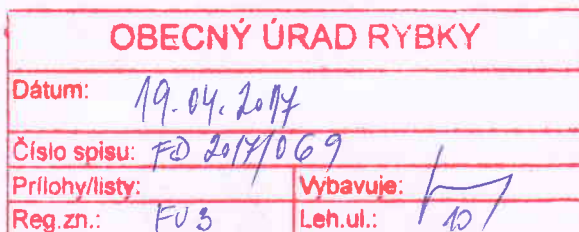 OBECNÝ ÚRAD RYBKY
Dátum: 19.04.2017
Číslo spisu: FD 2017/069
Prílohy/listy: Vybavuje:
Reg.zn.: FU3 Leh.ul.: 10